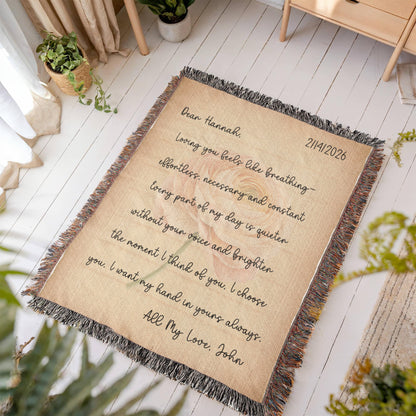 Dear Hannah,
2/14/2026
Loving you feels like breathing—
effortless, necessary and constant
Every part of my day is quieter
without your voice and brighter
the moment I think of you. I choose
you. I want my hand in yours always.
All My Love, John